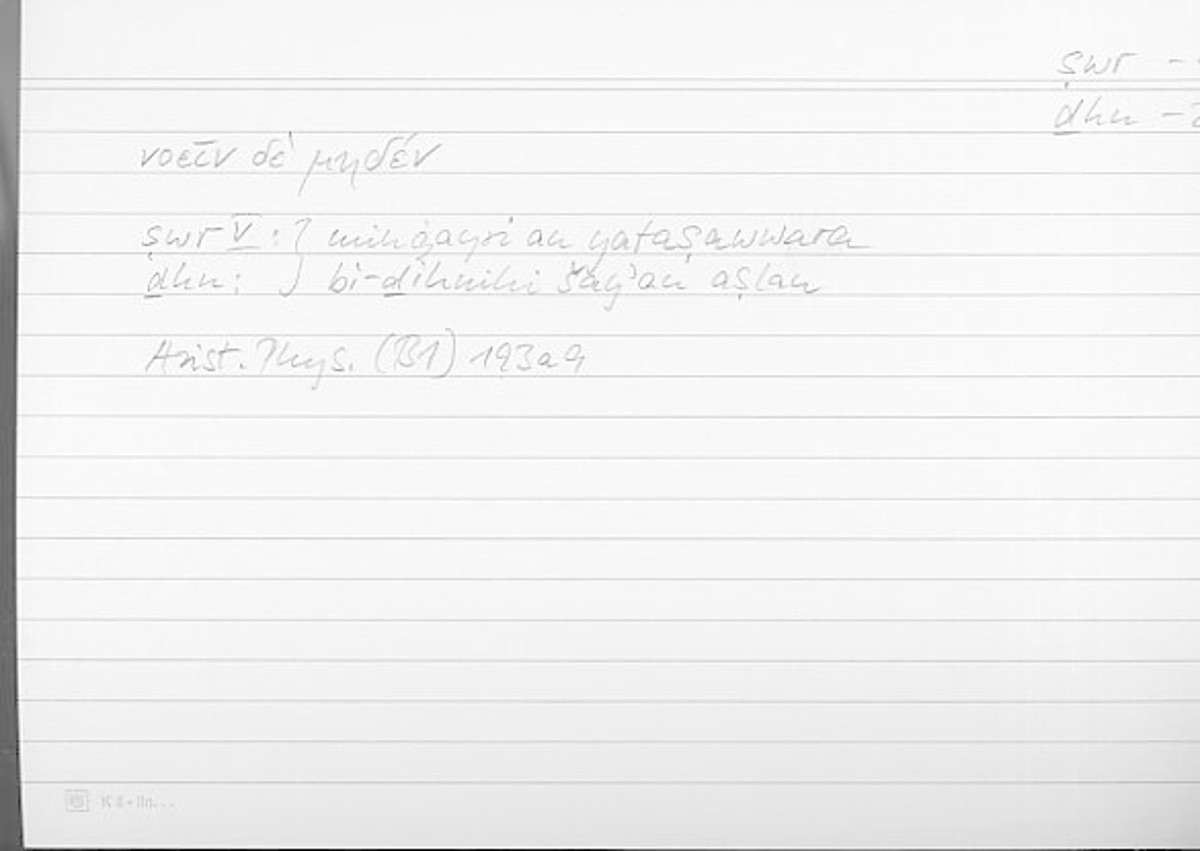 ṣwr -
ḏhn -
νοεῖν δὲ μηδέν
ṣwr V : } min ġayri an yataṣawwara
ḏhn : } bi-ḏihnihi šay'an aṣlan
Arist. Phys. (B1) 193a9